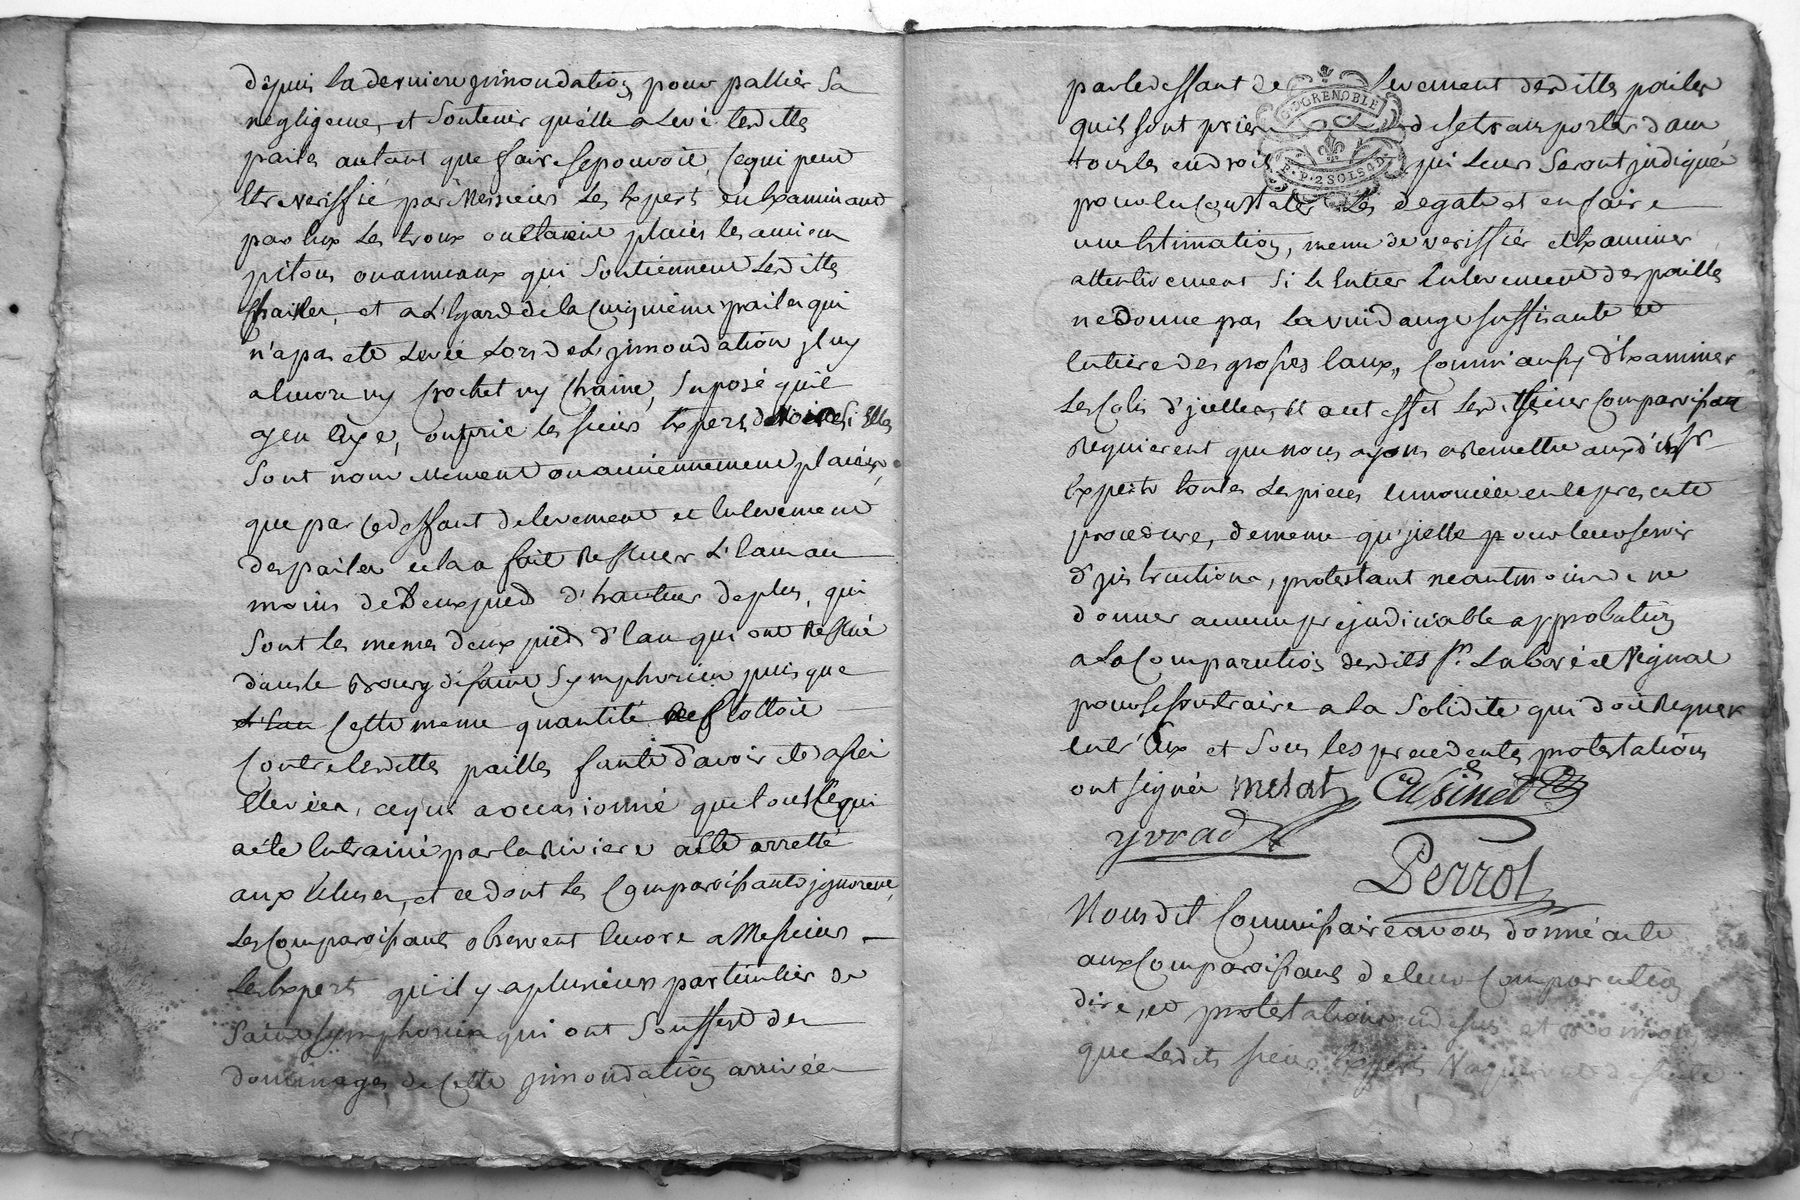 depuis la derniere jnnondation pour pallier sa
negligence, et soutenir qu'elle a levé lesdittes
pailes autant que faire se pouvoit, ce qui peut
etre veriffié par Messieurs les Expert en Examinant
par Eux les troux ou etaient placés les anciens
pitons ou anneaux qui soutiennent lesdittes
pailes, et a l'Egard de la cinquieme paile qui
n'a pas eté levée lors de l'jnnondation jl ny
a encore ny crochet ny chaine, suposé qu'il
y en aye, on prie les sieurs Experts de voir si Elles
sont nouvellement ou anciennement placées,
que par ce deffaut de levement et Enlevement
des pailes cela a fait Refluer l'Eau au
moins de Deux pied d'hauteur de plus, qui
sont les memes deux pied d'Eau qui ont Reflué
dans le Bourg de saint Symphorien puis que
l'Eau cette meme quantité flottoit
contre lesdittes pailles faute d'avoir eté assés
Elevées, ce qui a occasionné que tout ce qui
a eté Entrainé par la Riviere a eté arretté
aux Ecluses, et ce dont les Comparoissants jgnorent,
les Comparoissants observent Encore a Messieurs
les Expert qu'il y a plusieurs particulier de
saint symphorien qui ont souffert des
dommages de cette jnnondation arrivée
par le deffaut de levement desdittes pailes
quils sont priés de se transporter dans
tous les endroits qui leurs seront jndiqués
pour en constater les degats et en faire
une Estimation, meme de veriffier et Examiner
attentivement si le Entier Enlevement des pailles
ne Donne pas la vuidange suffisante et
Entiere des grosses Eaux, comm'aussy d'Examiner
les Clefs d'jcelles, Et a cet effet lesdits sieurs Comparoissants
Requierent que nous ayons a Remettre auxdits srs
Experts toutes les pieces Enoncées en la presente
procedure, de meme qu'jcelle pour leur servir
d'jnstructions, protestant neantmoins de ne
donner aucune prejudiciable approbation
a la Comparution desdits srs Laboré et Vignal
pour se soustraire a la solidité qui doit Regner
entr'Eux et sous les precedentes protestations
ont signés metat Cusinet
yvrad
Perrot
Nous dit Commissaire avons donné acte
aux Comparoissants de leur Comparution
dire, et protestations cy dessus et
que lesdits sieurs Experts
DGRENOBLE
P. 2 SOLS